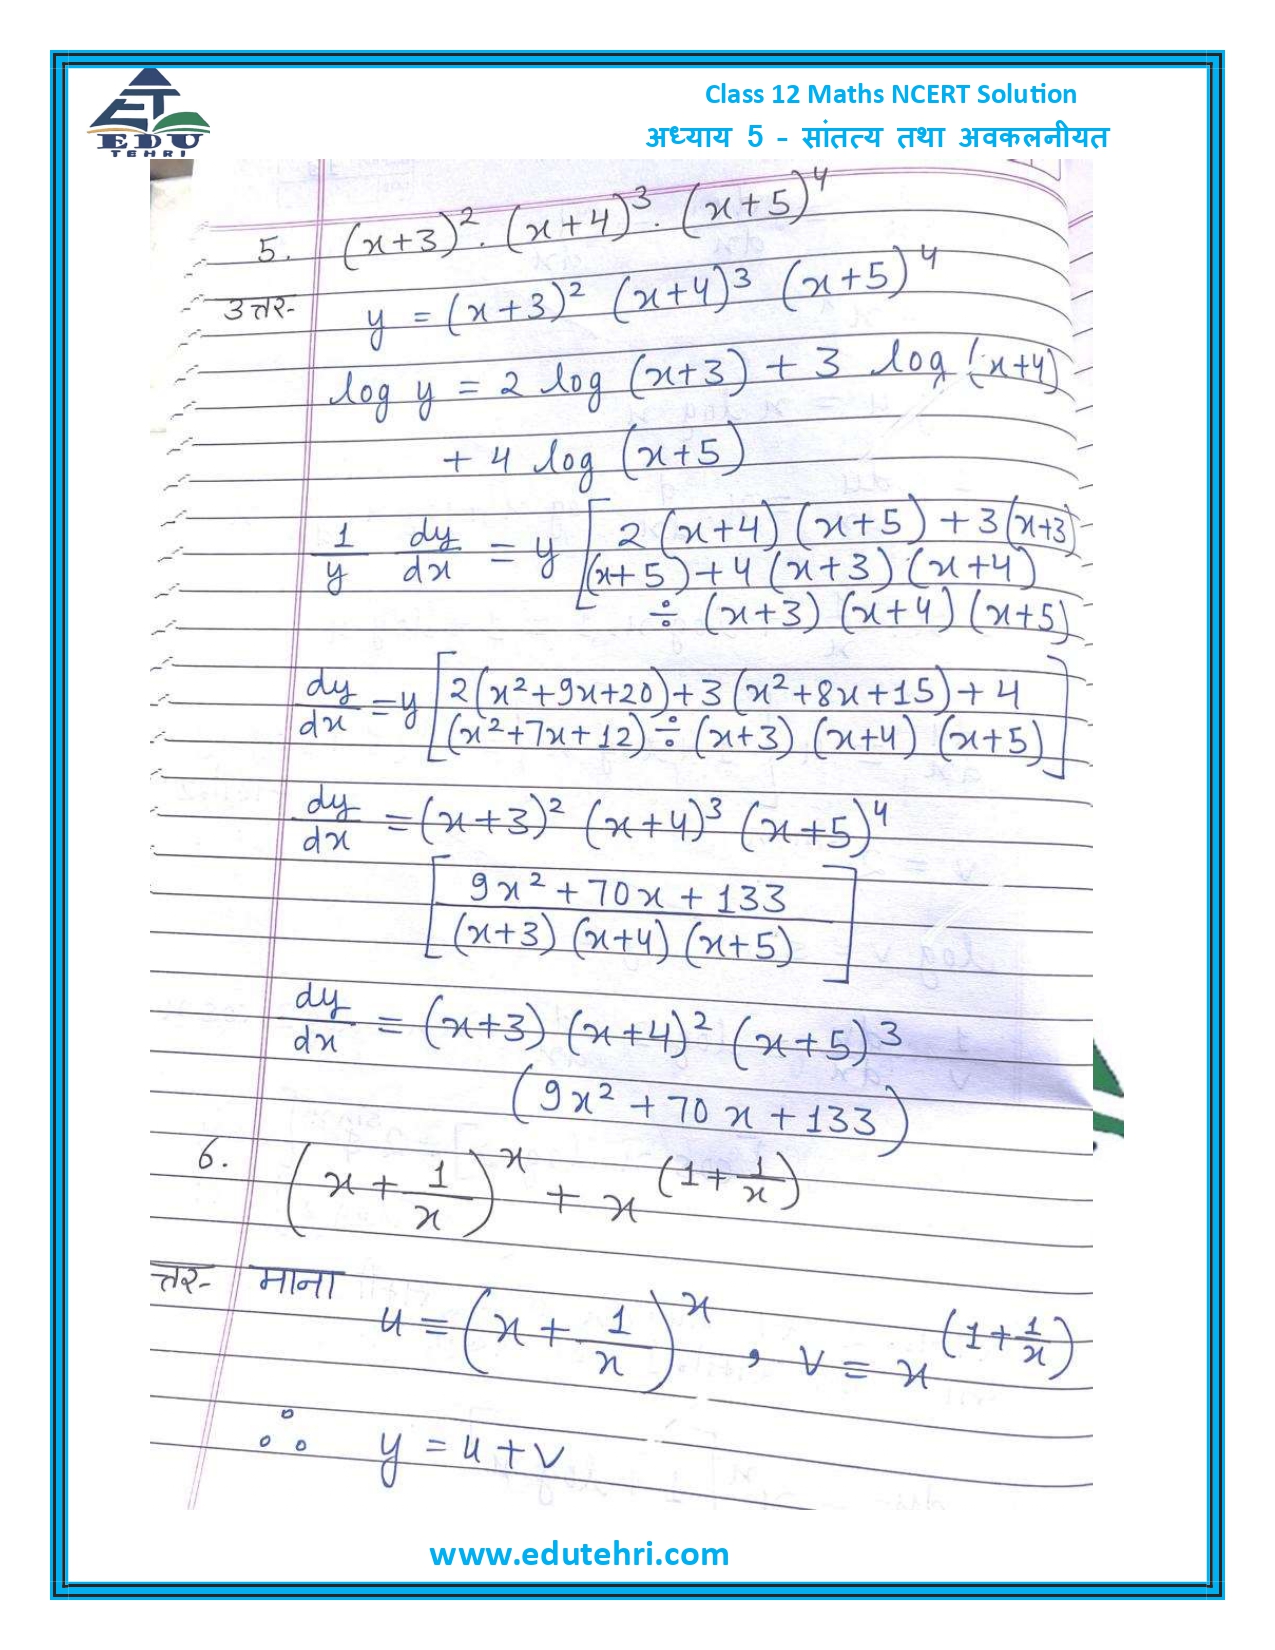 EDU
TEHRI
Class 12 Maths NCERT Solution
अध्याय 5 - सांतत्य तथा अवकलनीयत
5. (x+3)². (x+4)³. (x+5)⁴
उत्तर- y = (x+3)² (x+4)³ (x+5)⁴
log y = 2 log (x+3) + 3 log (x+4)
+ 4 log (x+5)
1/y dy/dx = y [2(x+4)(x+5) + 3(x+3)
(x+5) + 4(x+3)(x+4)
÷ (x+3)(x+4)(x+5)
dy/dx = y [2(x²+9x+20) + 3(x²+8x+15) + 4
(x²+7x+12) ÷ (x+3)(x+4)(x+5)]
dy/dx = (x+3)² (x+4)³ (x+5)⁴
[9x²+70x+133 / (x+3)(x+4)(x+5)]
dy/dx = (x+3)(x+4)² (x+5)³
(9x²+70x+133)
6. (x + 1/x)^x + x^(1+1/x)
त्तर- माना
u = (x + 1/x)^x , v = x^(1+1/x)
∴ y = u + v
www.edutehri.com